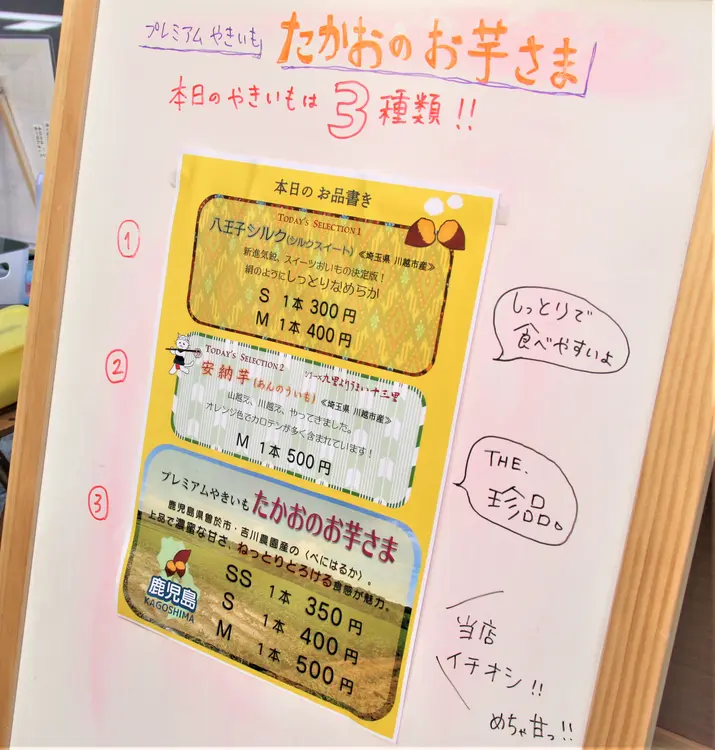 プレミアム やきいも たかおのお芋さま
本日のやきいもは 3 種類!!
本日のお品書き
①
TODAY'S SELECTION 1
八王子シルク(シルクスイート)≪埼玉県 川越市産≫
新進気鋭、スイーツおいもの決定版!
絹のようにしっとりなめらか
S 1本 300円
M 1本 400円
しっとりで
食べやすいよ
②
TODAY'S SELECTION 2
九里よりうまい十三里
安納芋(あんのういも)≪埼玉県 川越市産≫
山越え、川越え、やってきました。
オレンジ色でカロテンが多く含まれています!
M 1本 500円
THE.
珍品。
③
プレミアムやきいも たかおのお芋さま
鹿児島県曽於市・吉川農園産の〈べにはるか〉。
上品で濃密な甘さ、ねっとりとろける食感が魅力。
鹿児島
KAGOSHIMA
SS 1本 350円
S 1本 400円
M 1本 500円
当店
イチオシ!!
めちゃ甘っ!!